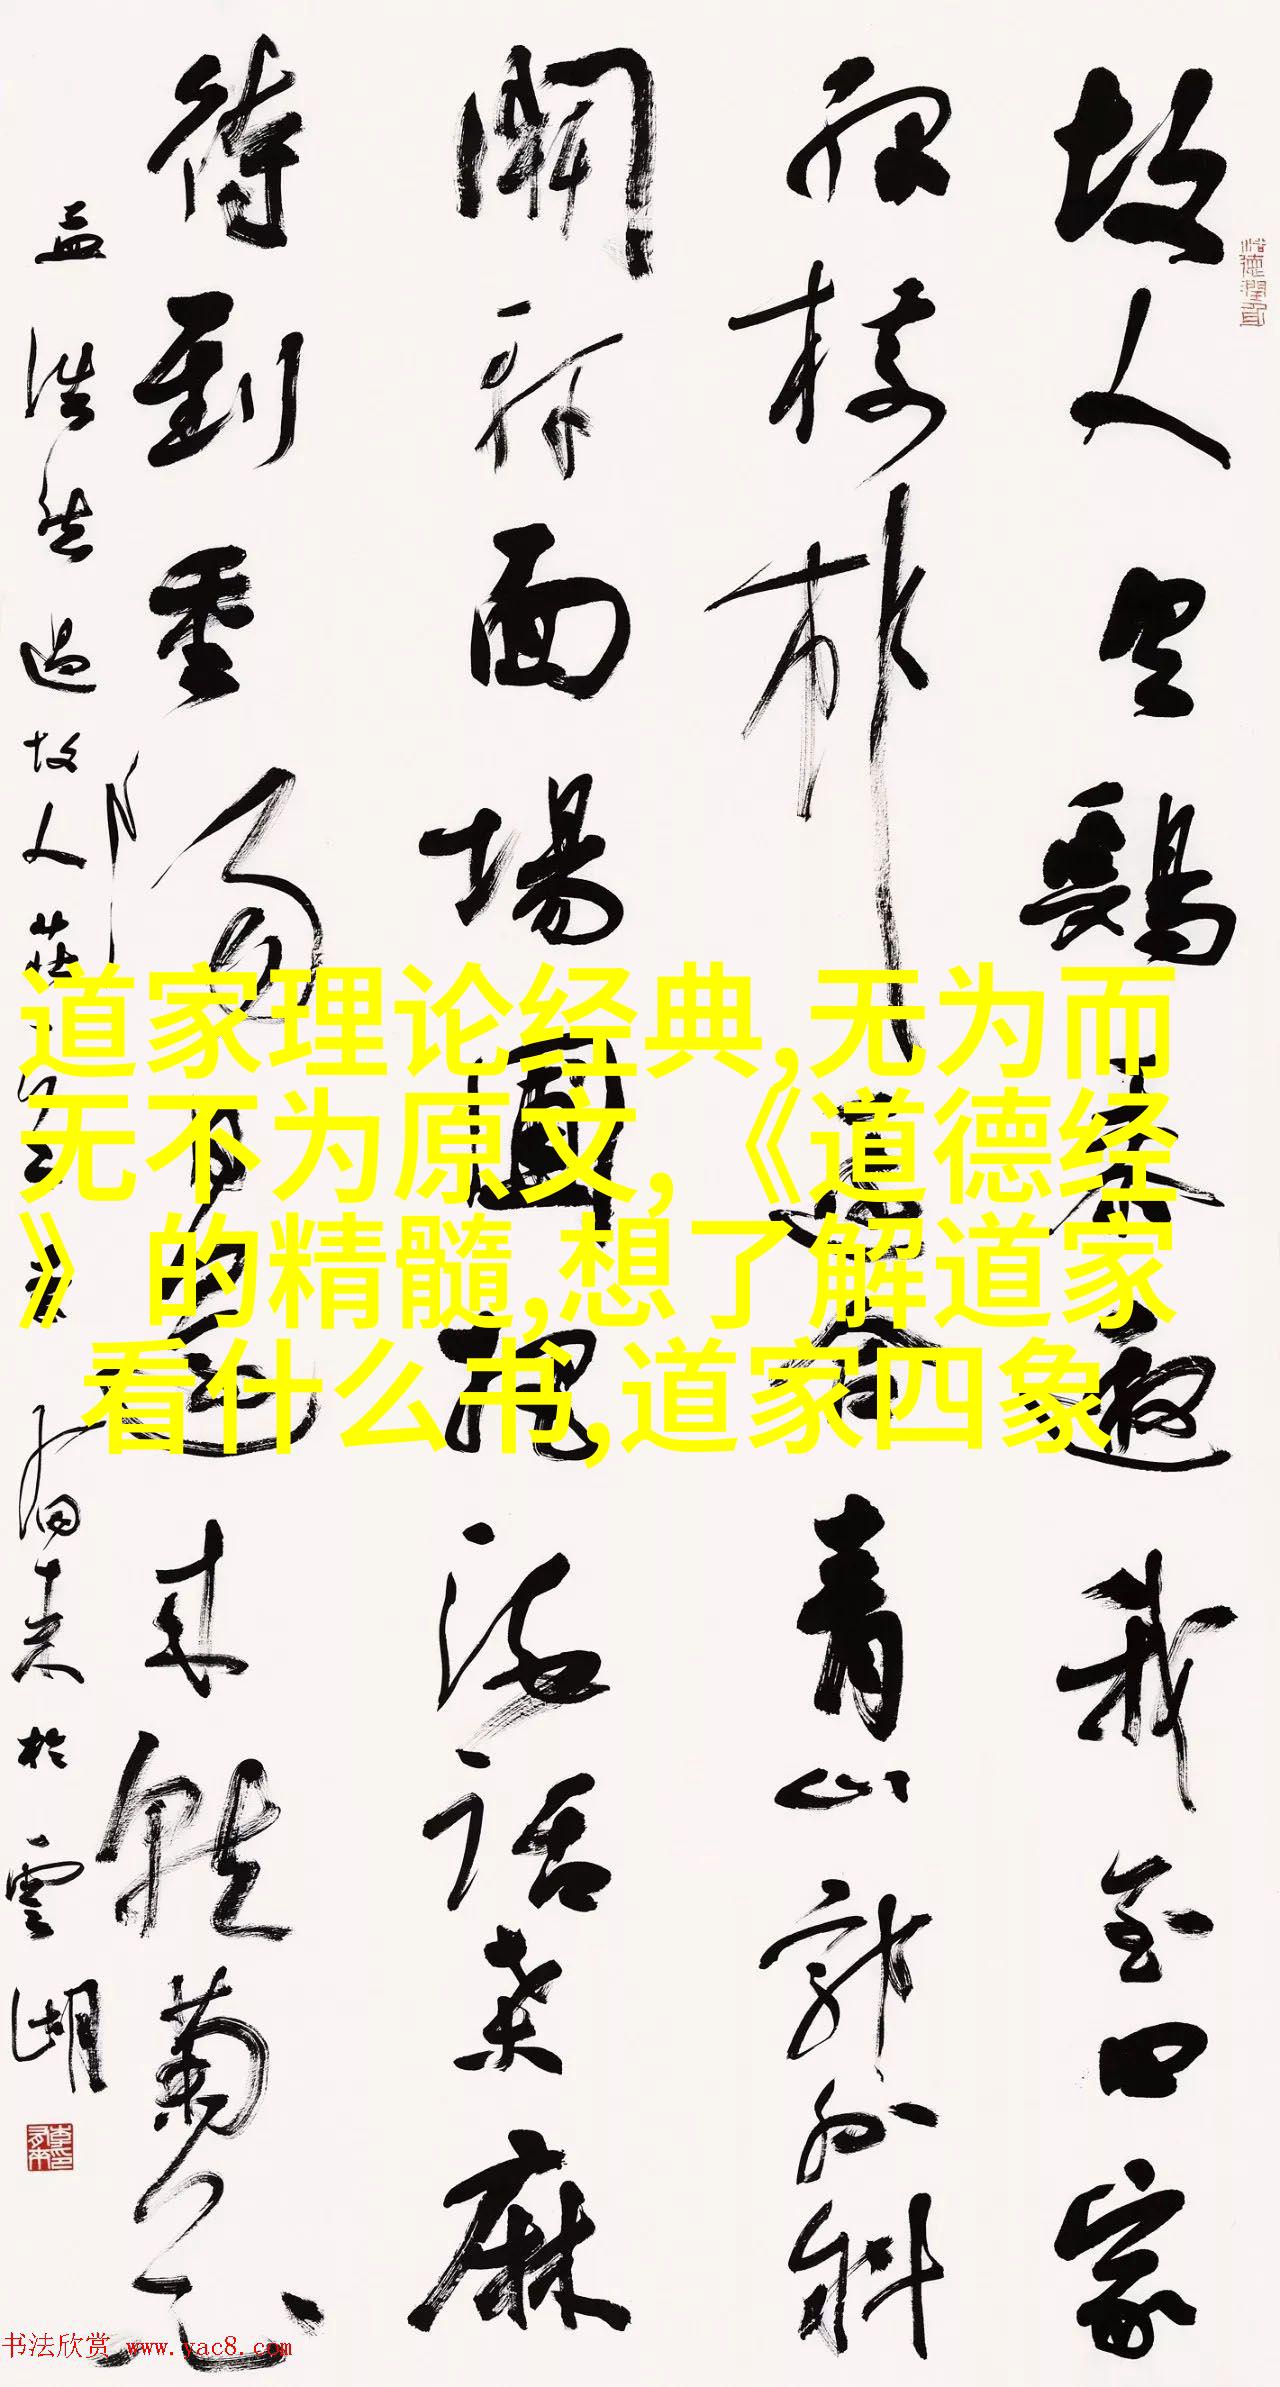 故人具鷄黍邀我至田家
緑樹村邊合青山郭外斜
開軒面場圃把酒話桑麻
待到重陽日還來就菊花
孟浩然過故人莊
有來於雲湖
道家理论经典,无为而
无不为原文,《道德经
》的精髓,想了解道家
看什么书,道家四象
书法欣赏 www.yac8.com